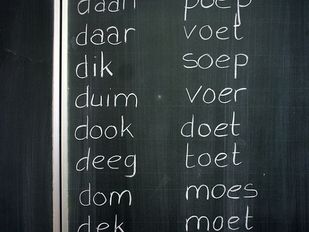 daan poep
daar voet
dik soep
duim voer
dook doet
deeg toet
dom moes
dek moet